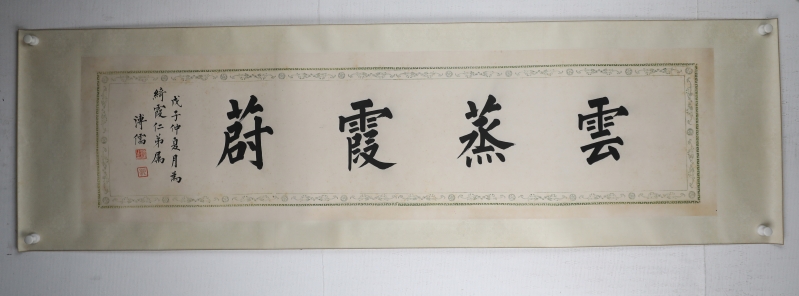 雲蒸霞蔚
戊子仲夏月為
綺霞仁弟屬
溥儒